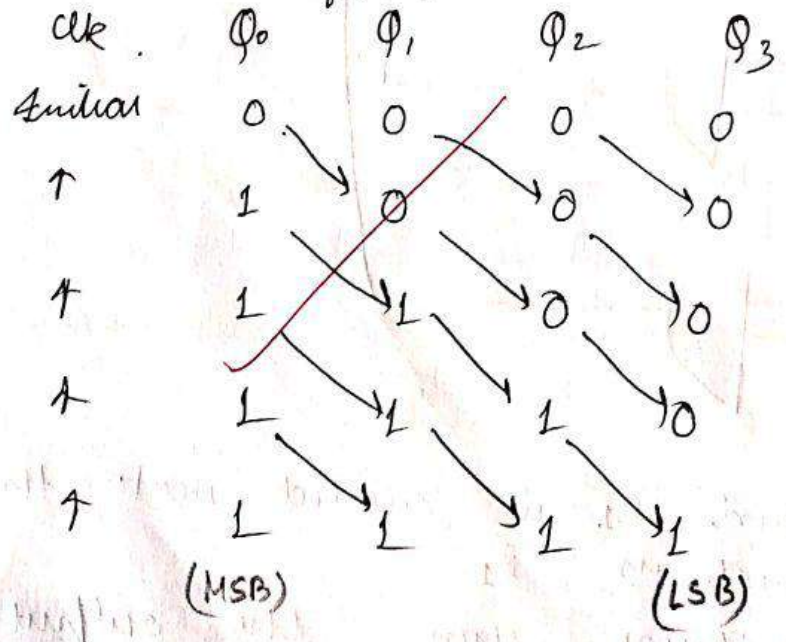 Clk. Q0 Q1 Q2 Q3
Initial 0 0 0 0
↑ 1 0 0 0
↑ 1 1 0 0
↑ 1 1 1 0
↑ 1 1 1 1
(MSB) (LSB)